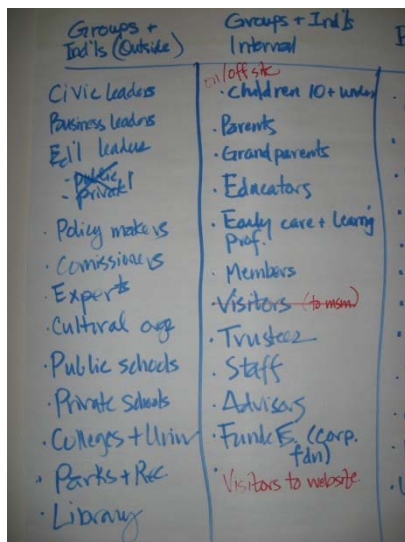 Groups +
Ind'ls (Outside)
Civic leaders
Business leaders
Ed'l leaders
- public
- private
· Policy makers
· Comissioners
· Experts
· Cultural orgs
· Public schools
· Private Schools
· Colleges + Univ
· Parks + Rec
· Library
Groups + Ind'ls
Internal
on/off site
· Children 10 + under
· Parents
· Grandparents
· Educators
· Early care + learning
prof.
· Members
· Visitors (to msm)
· Trustees
· Staff
· Advisors
· Funders (corp.
fdn)
Visitors to website